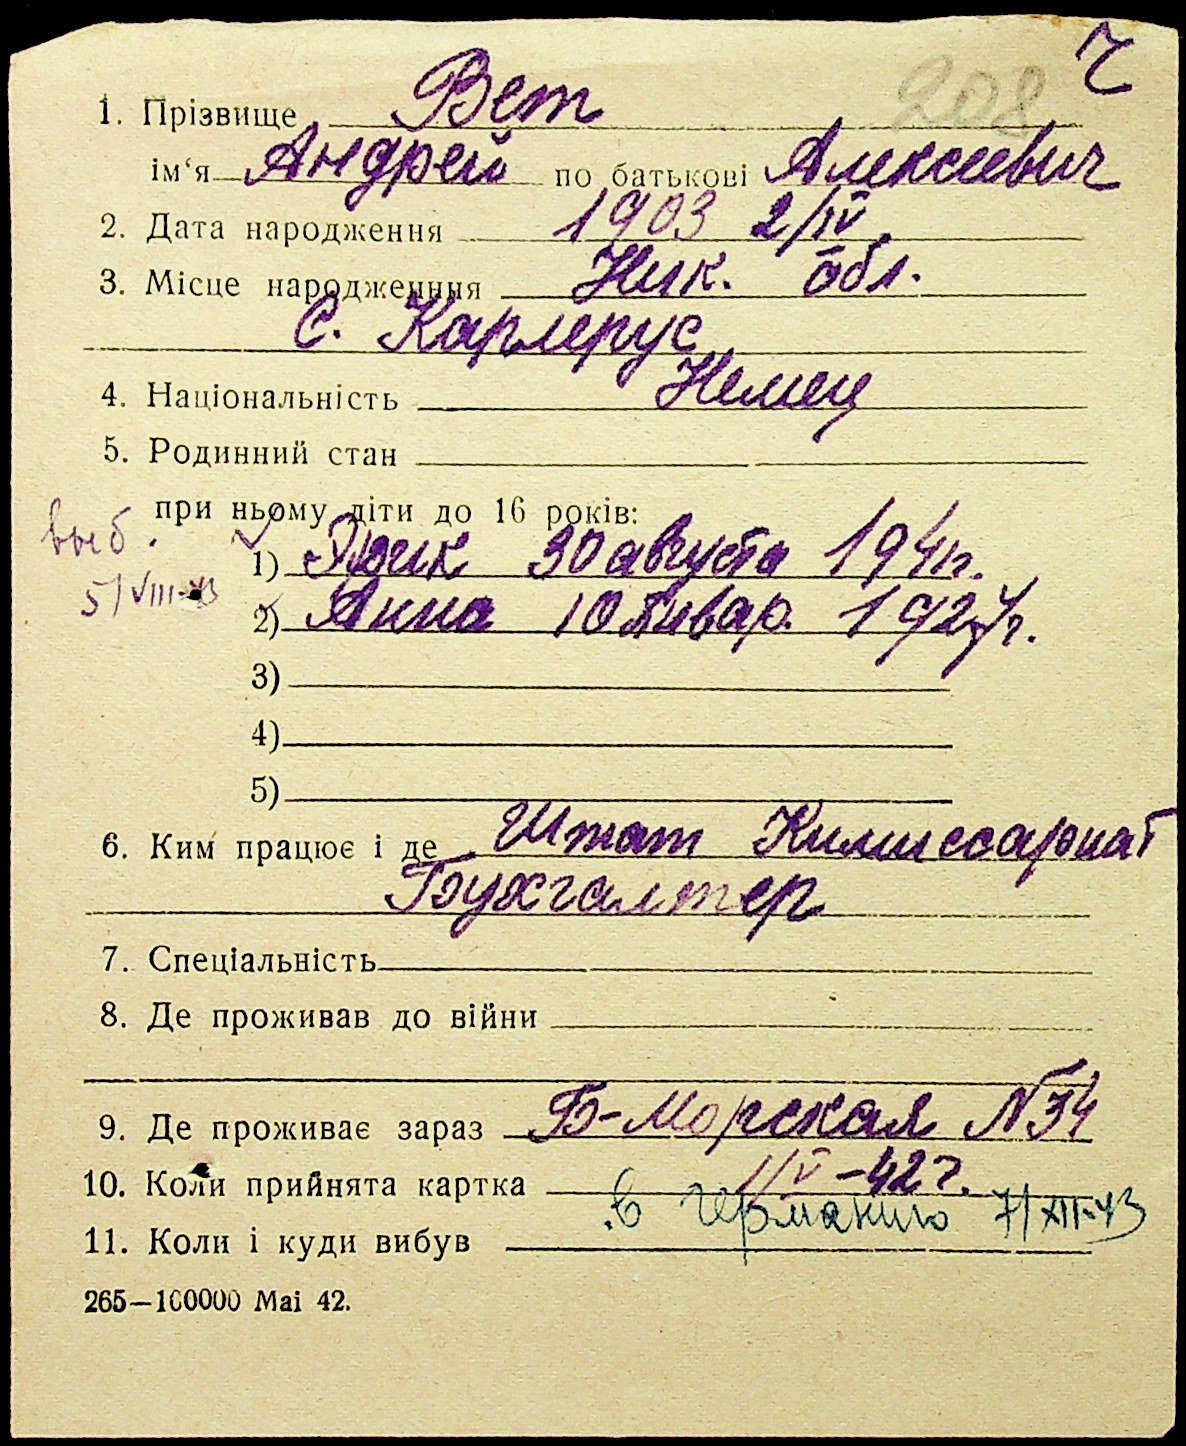 Ч
208
1. Прізвище Вет
ім‘я Андрей по батькові Алексеевич
2. Дата народження 1903 2/IV
3. Місце народженння Ник. обл.
С. Карлерус
4. Національність Немец
5. Родинний стан
при ньому діти до 16 років:
выб.
5/VIII-43
1) Эрик 30 августа 1941г.
2) Анна 10 Январ. 1927г.
3)
4)
5)
6. Ким працює і де Штат Комиссариат
Бухгалтер
7. Спеціальність
8. Де проживав до війни
9. Де проживає зараз Б-Морская N 34
10. Коли прийнята картка 1/V-42 г.
в Германию 7/XII-43
11. Коли і куди вибув
265—100000 Mai 42.